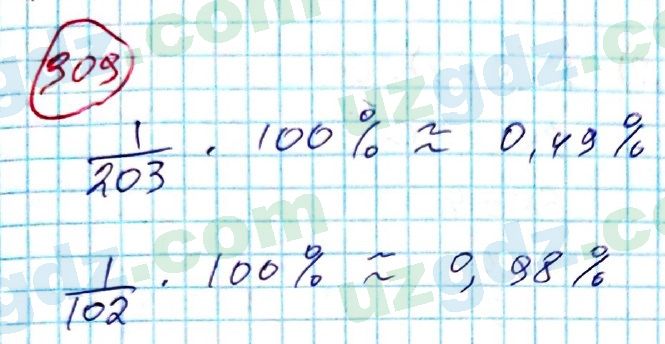 909
1/203 · 100% ≈ 0,49%
1/102 · 100% ≈ 0,98%
uzgdz.com
uzgdz.com
gdz.com
uzgdz.com